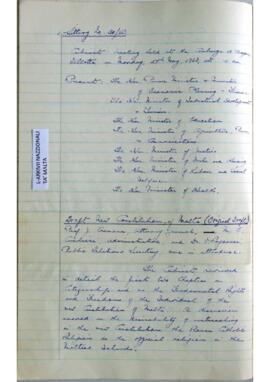 Sitting No.
Cabinet meeting held at the Auberge d'Aragon
Valletta on Monday, May, 1963, at
Present: The Hon. Prime Minister & Minister
of Economic Planning & Finance
The Hon. Minister of Industrial Development
& Tourism
The Hon. Minister of Education
The Hon. Minister of Agriculture, Power
& Communications
The Hon. Minister of Justice
The Hon. Minister of Works and Housing
The Hon. Minister of Labour and Social
Welfare
The Hon. Minister of Health.
L-ARKIVI NAZZJONALI
TA' MALTA
Draft New Constitution of Malta (Original Draft)
Prof. J. Cremona, Attorney General,
and Dr.
Public Relations were in attendance.
The Cabinet reviewed
in detail the first two Chapters on
Citizenship and on the Fundamental Rights
and Freedoms of the Individual of the
new Constitution of Malta. A discussion
ensued on the of
in the new Constitution the Roman Catholic
Religion as the official religion in the
Maltese Islands.